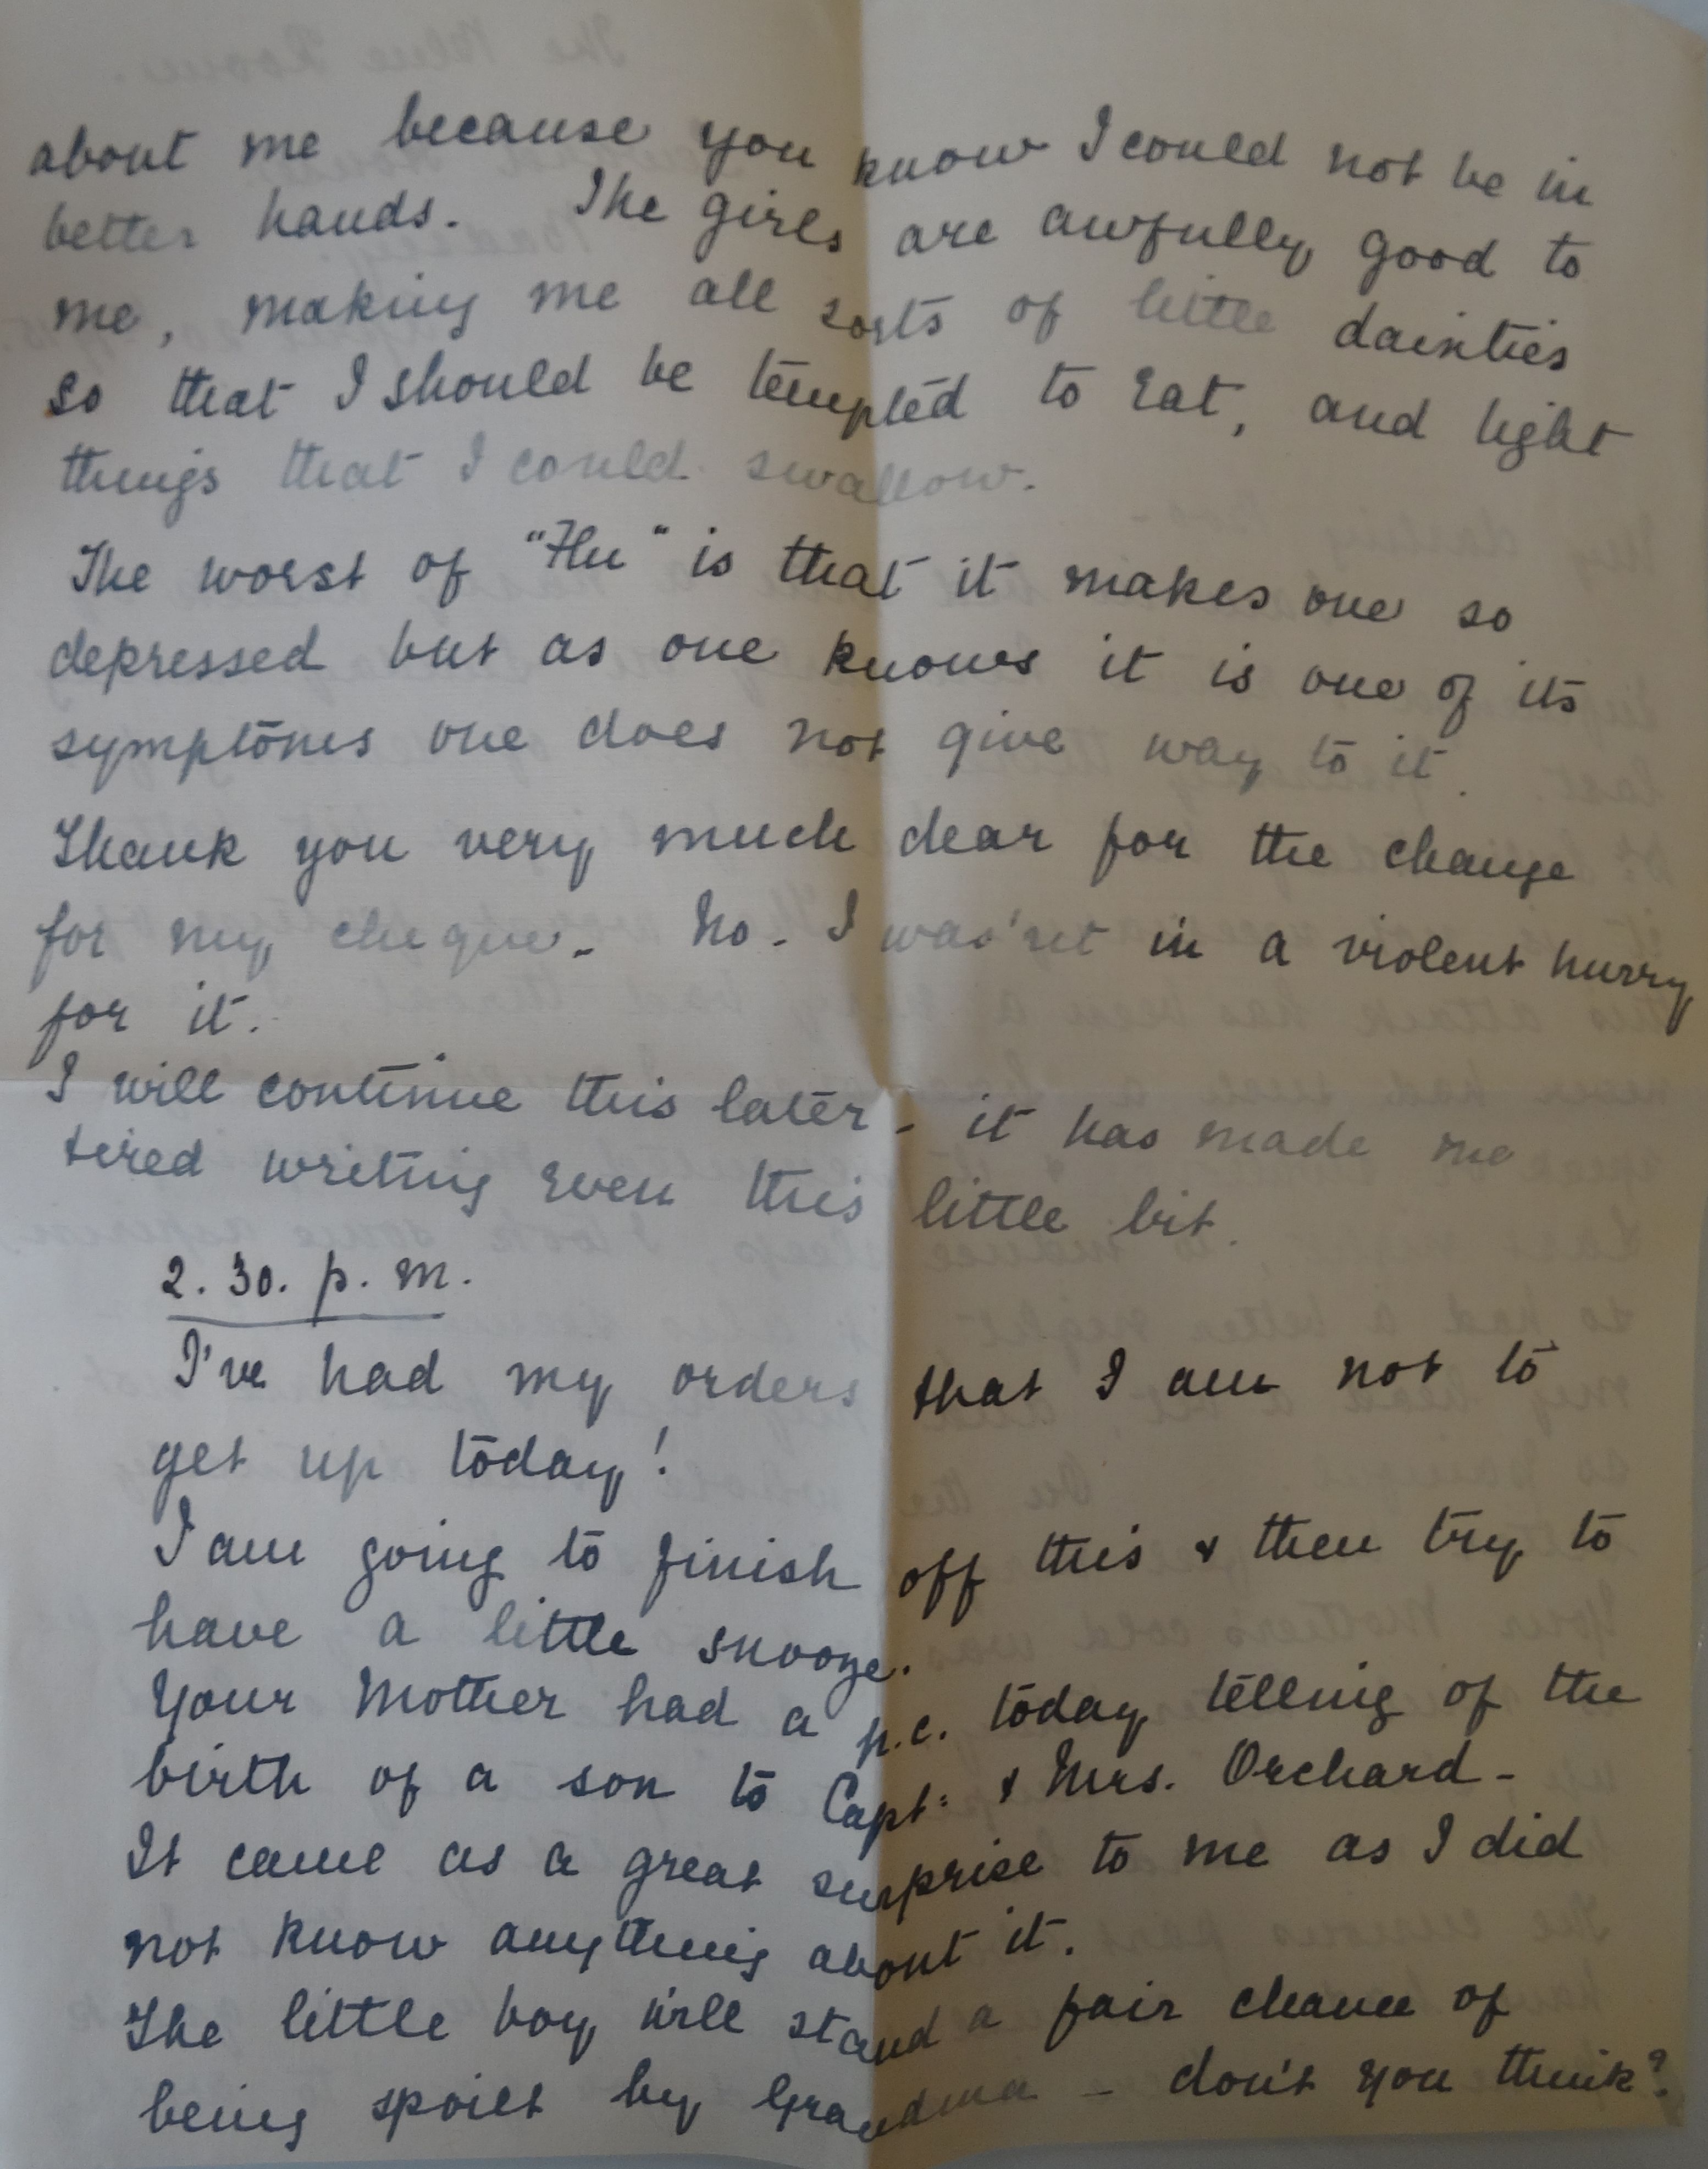 about me because you know I could not be in
better hands. The girls are awfully good to
me, making me all sorts of little dainties
so that I should be tempted to eat, and light
things that I could swallow.
The worst of "Flu" is that it makes one so
depressed but as one knows it is one of its
symptoms one does not give way to it.
Thank you very much dear for the change
for my cheque. No. I was'nt in a violent hurry
for it.
I will continue this later - it has made me
tired writing even this little bit.
2. 30. p. m.
I've had my orders that I am not to
get up today!
I am going to finish off this & then try to
have a little snooze.
Your Mother had a p.c. today telling of the
birth of a son to Capt: & Mrs. Orchard -
It came as a great surprise to me as I did
not know anything about it.
The little boy will stand a fair chance of
being spoilt by Grandma - don't you think?